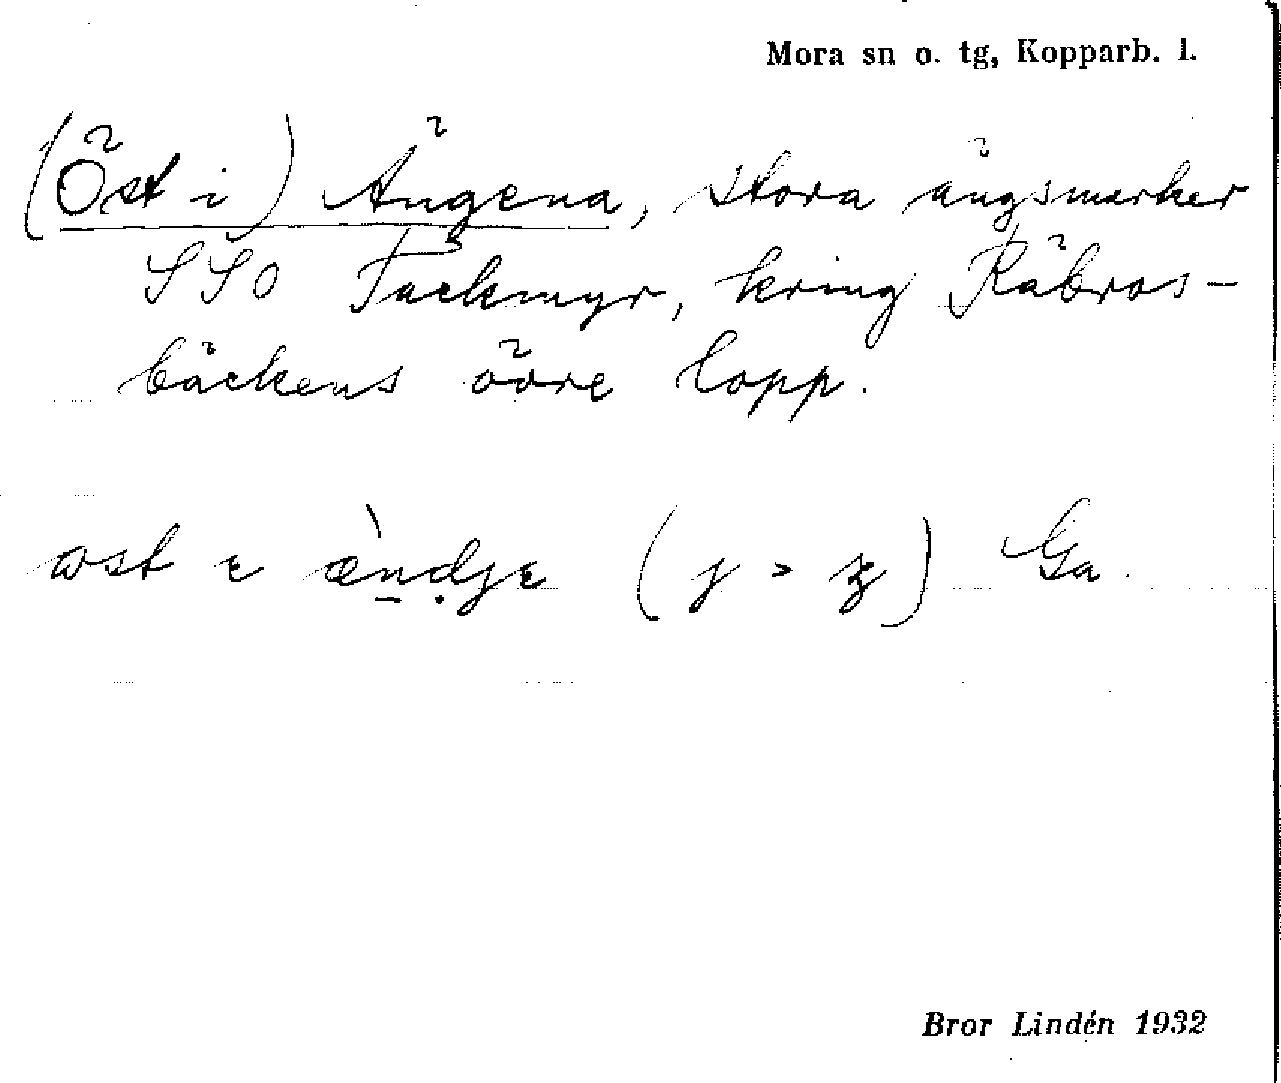 Mora sn o. tg, Kopparb. l.
(Öst i) Ängena, stora ängsmarker
SSO Tackmyr, kring Räbros-
bäckens övre lopp.
ɷst ɛ æ̀nd̥jɛ (j > ʓ) Ga.
Bror Lindén 1932